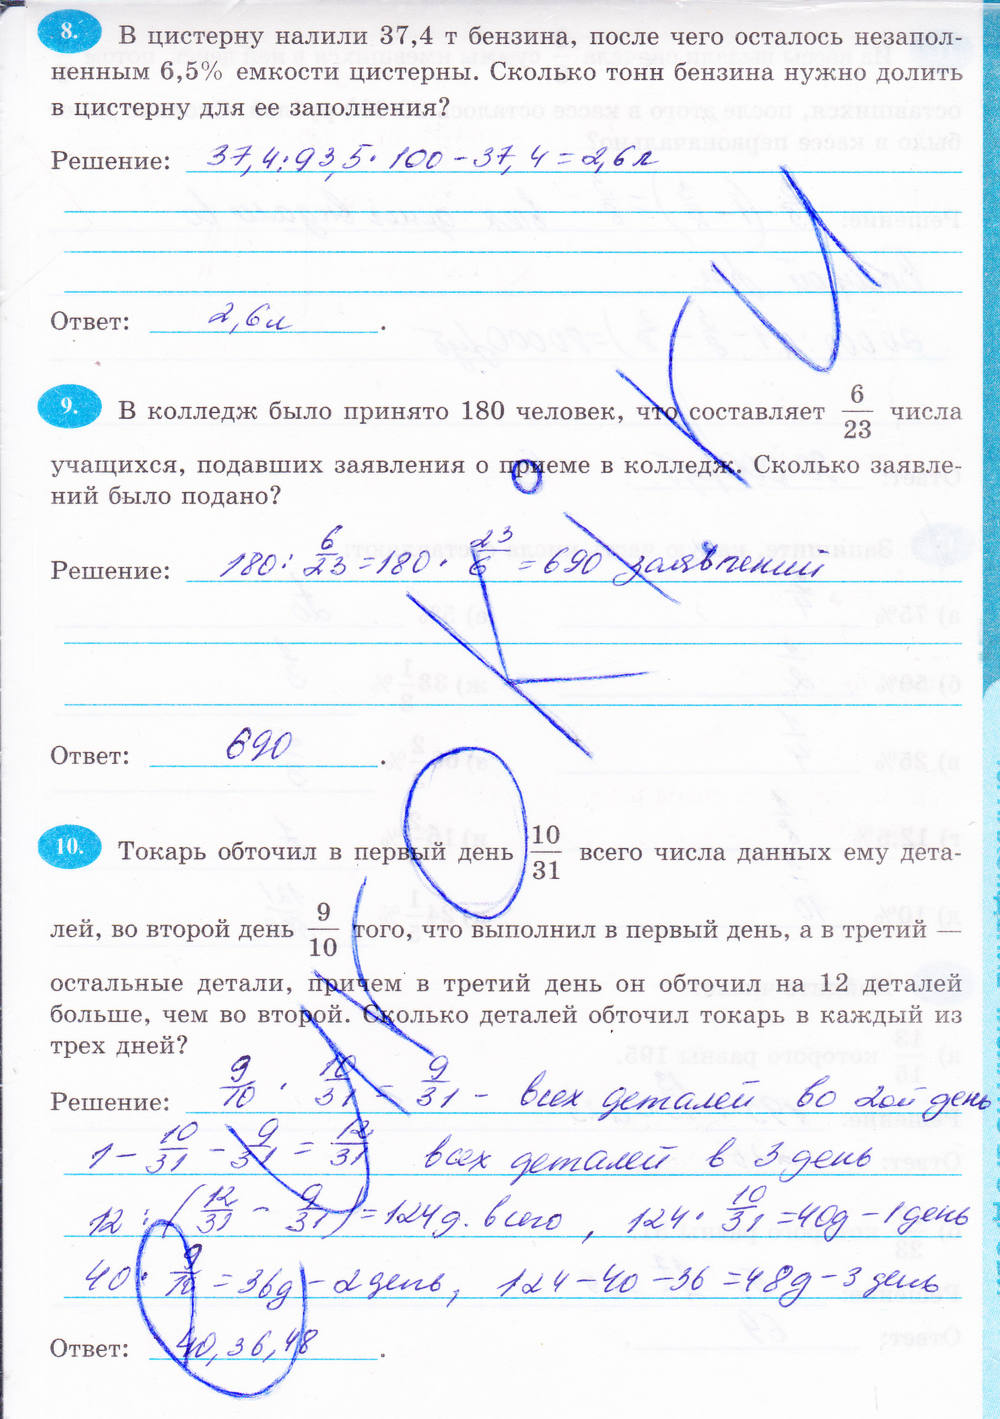 8. В цистерну налили 37,4 т бензина, после чего осталось незапол-
ненным 6,5% емкости цистерны. Сколько тонн бензина нужно долить
в цистерну для ее заполнения?
Решение: 37,4:93,5·100-37,4=2,6л
Ответ: 2,6л.
9. В колледж было принято 180 человек, что составляет 6/23 числа
учащихся, подавших заявления о приеме в колледж. Сколько заявле-
ний было подано?
Решение: 180:6/23=180·23/6=690 заявлений
Ответ: 690.
10. Токарь обточил в первый день 10/31 всего числа данных ему дета-
лей, во второй день 9/10 того, что выполнил в первый день, а в третий —
остальные детали, причем в третий день он обточил на 12 деталей
больше, чем во второй. Сколько деталей обточил токарь в каждый из
трех дней?
Решение: 9/10 · 10/31 = 9/31 - всех деталей во 2ой день
1-10/31-9/31=12/31 всех деталей в 3 день
12:(12/31-9/31)=124д. всего, 124·10/31=40д-1 день
40·9/10=36д-2 день, 124-40-36=48д-3 день
Ответ: 40, 36, 48.